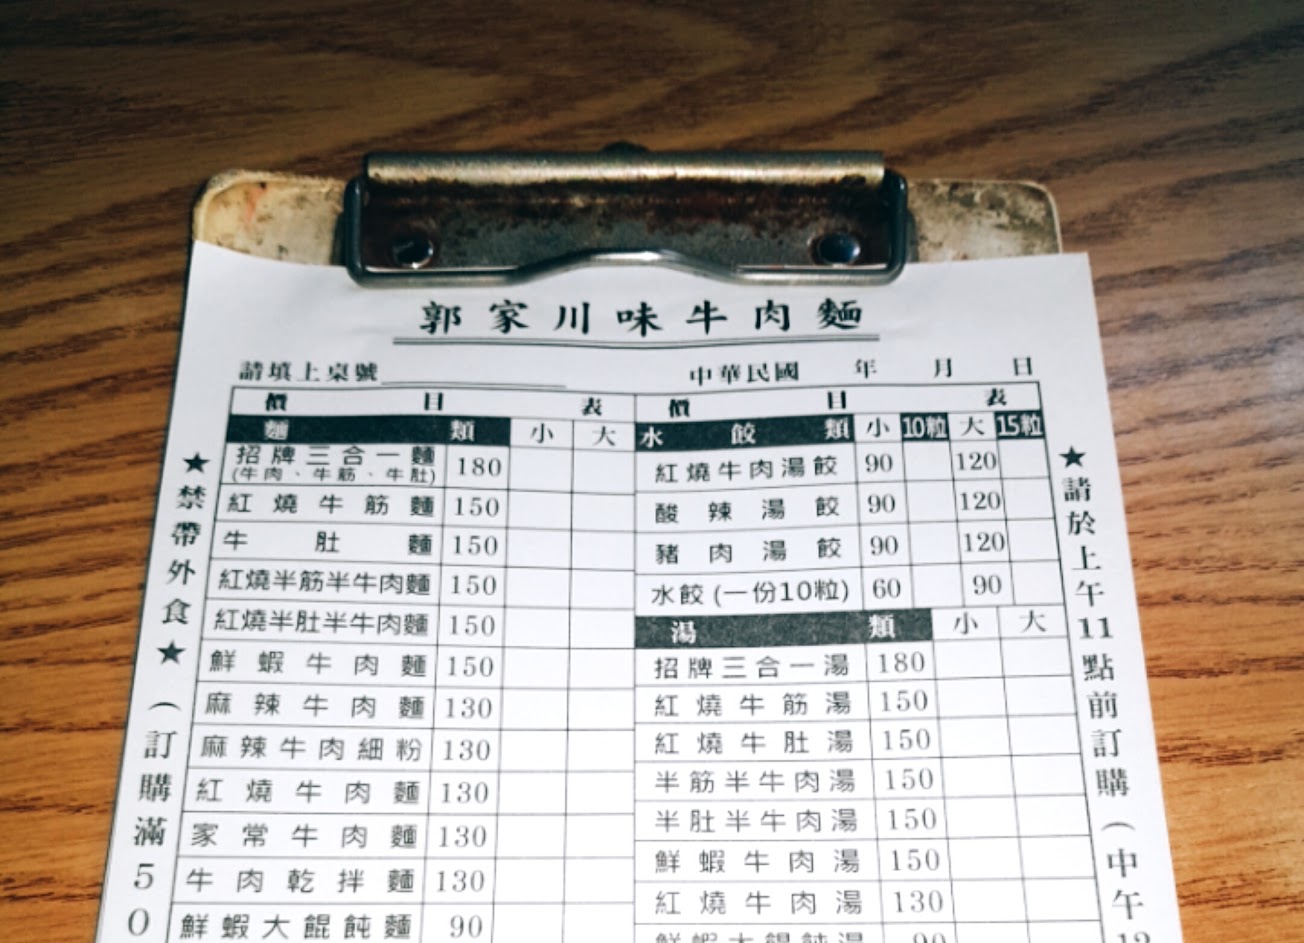 郭家川味牛肉麵
請填上桌號 中華民國 年 月 日
價目表
麵類 小 大
招牌三合一麵 180
(牛肉、牛筋、牛肚)
紅燒牛筋麵 150
牛肚麵 150
紅燒半筋半牛肉麵 150
紅燒半肚半牛肉麵 150
鮮蝦牛肉麵 150
麻辣牛肉麵 130
麻辣牛肉細粉 130
紅燒牛肉麵 130
家常牛肉麵 130
牛肉乾拌麵 130
鮮蝦大餛飩麵 90
價目表
水餃類 小 10粒 大 15粒
紅燒牛肉湯餃 90 120
酸辣湯餃 90 120
豬肉湯餃 90 120
水餃(一份10粒) 60 90
湯類 小 大
招牌三合一湯 180
紅燒牛筋湯 150
紅燒牛肚湯 150
半筋半牛肉湯 150
半肚半牛肉湯 150
鮮蝦牛肉湯 150
紅燒牛肉湯 130
鮮蝦大餛飩湯 90
★禁帶外食★(訂購滿50
★請於上午11點前訂購(中午12